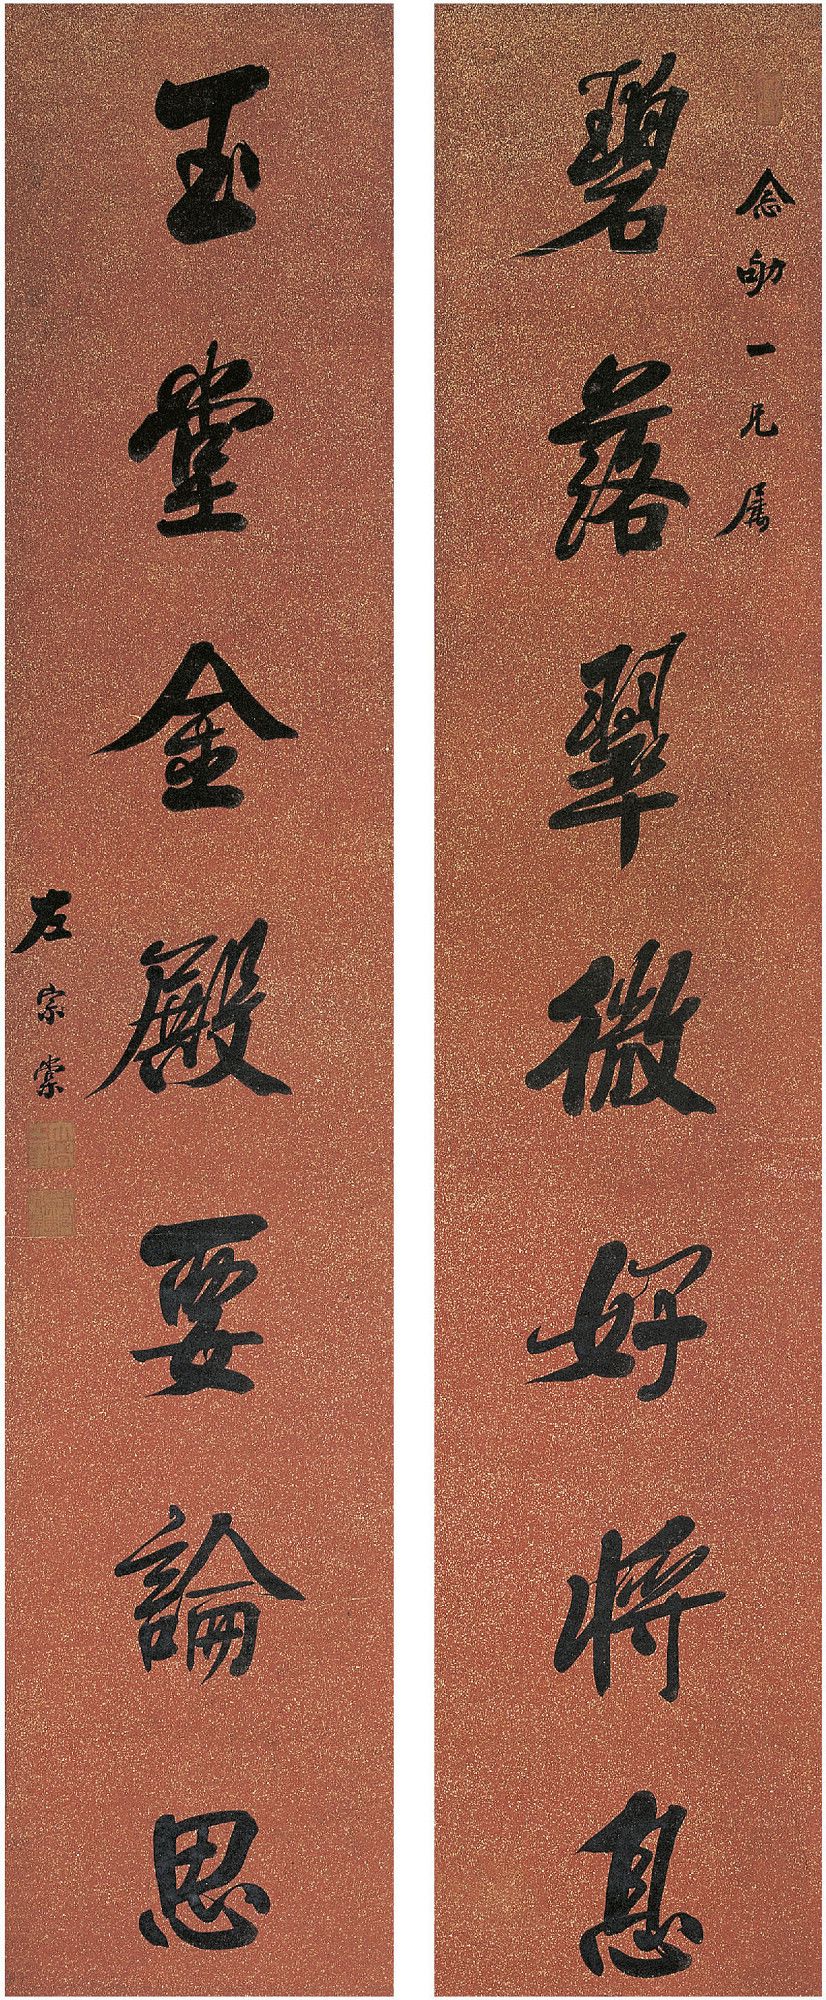 念劬一兄属
碧落翠微好将息
玉堂金殿要論思
左宗棠